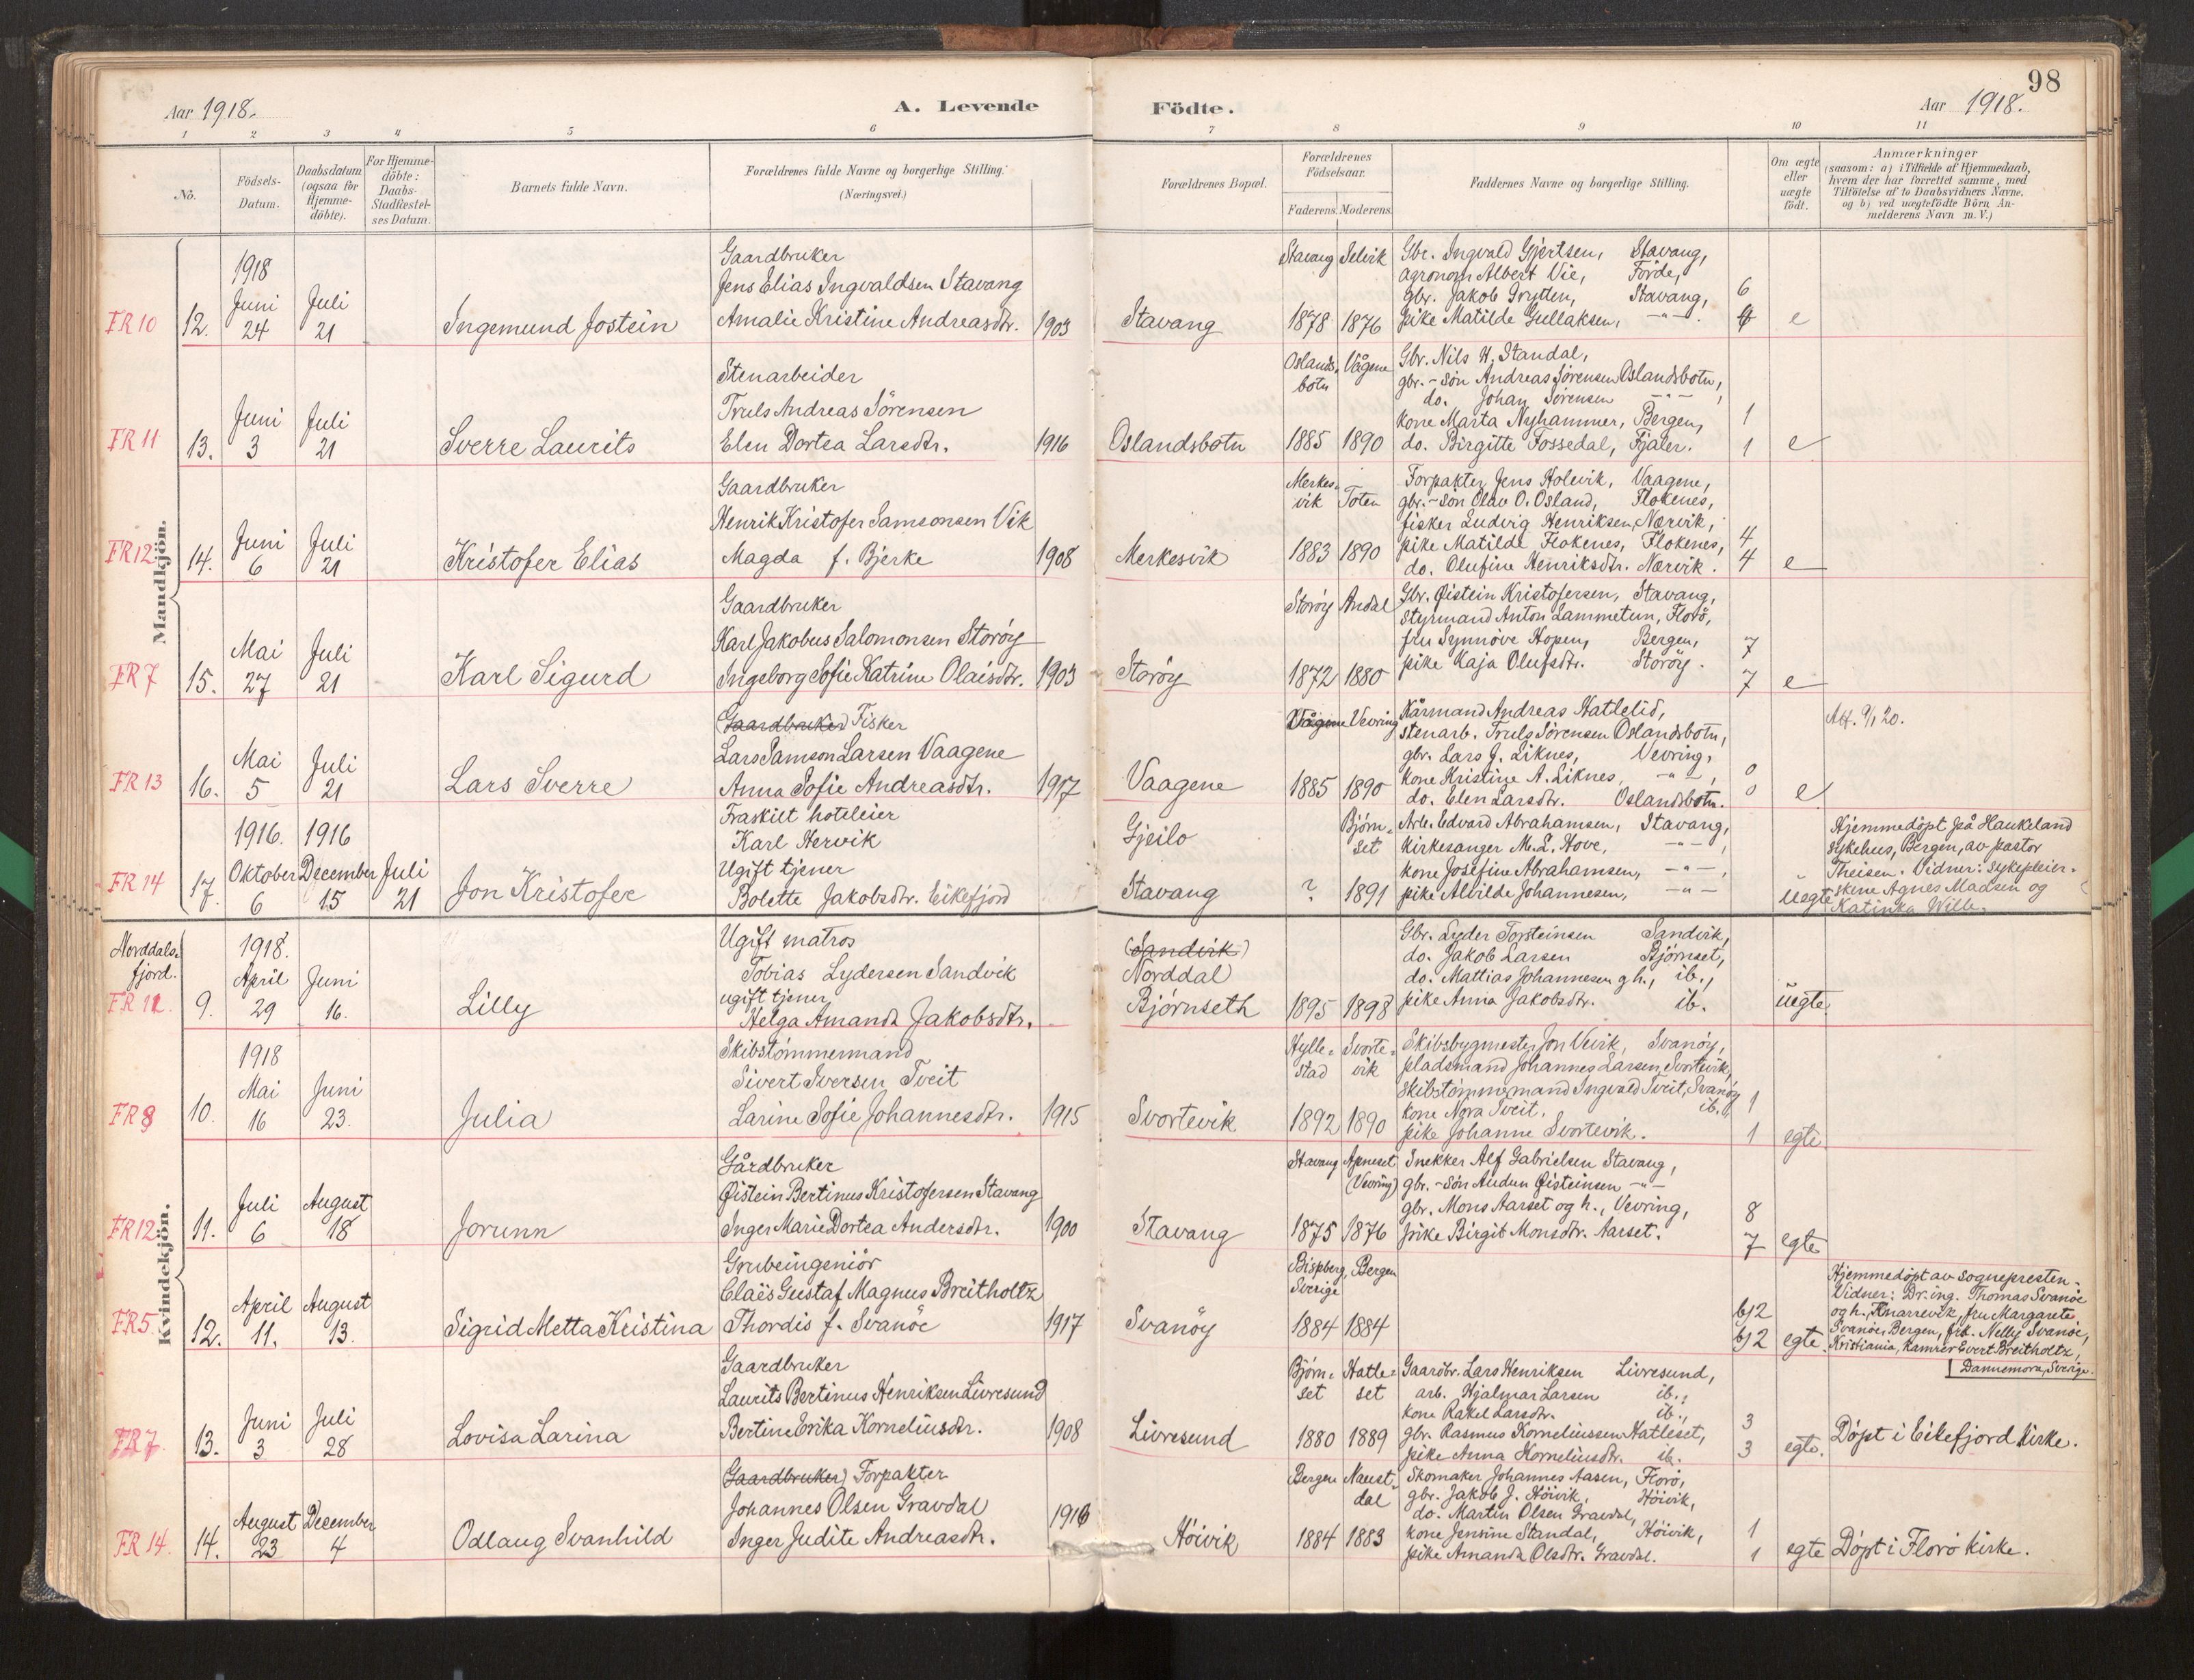 98
Aar 1918.
A. Levende
Födte.
Aar 1918.
1 2 3 4 5 6 7 8 9 10 11
No.
Födsels-
Datum.
Daabsdatum
(ogsaa for
Hjemme-
döbte).
For Hjemme-
döbte:
Daabs-
Stadfæstel-
ses Datum.
Barnets fulde Navn.
Forældrenes fulde Navne og borgerlige Stilling.
(Næringsvei.)
Forældrenes Bopæl.
Forældrenes
Födselsaar.
Faderens. Moderens.
Faddernes Navne og borgerlige Stilling.
Om ægte
eller
uægte
födt.
Anmærkninger
(saasom: a) i Tilfælde af Hjemmedaab,
hvem der har forrettet samme, med
Tilföielse af to Daabsvidners Navne.
og b) ved uægtefödte Börn An-
melderens Navn m. V.)
Mandkjön.
FR 10
12.
1918
Juni
24
Juli
21
Ingemund Jostein
Gaardbruker
Jens Elias Ingvaldsen Stavang
Amalie Kristine Andreasdtr.
1903
Stavang
Stavang Selvik
1878 1876
Gbr. Ingvald Gjertsen, Stavang,
agronom Albert Vie, Förde,
gbr. Jakob Grytten, Stavang,
pike Matilde Gullaksen, -"-.
6
e
FR 11
13.
Juni
3
Juli
21
Sverre Laurits
Stenarbeider
Truls Andreas Sörensen
Elen Dortea Larsdtr.
1916
Oslandsbotn
Oslands-
botn
Vågene
1885 1890
Gbr. Nils H. Standal,
gbr.-sön Andreas Sörensen Oslandsbotn,
do. Johan Sörensen -"-,
kone Marta Nyhammer, Bergen,
do. Birgitte Fossedal, Fjaler.
1
1
e
FR 12
14.
Juni
6
Juli
21
Kristofer Elias
Gaardbruker
Henrik Kristofer Samsonsen Vik
Magda f. Bjerke
1908
Merkesvik
Merkes-
vik
Toten
1883 1890
Forpakter Jens Holevik, Vaagene,
gbr.-sön Olav O. Osland, Flokenes,
fisker Ludvig Henriksen, Nærvik,
pike Matilde Flokenes, Flokenes,
do. Olufine Henriksdtr. Nærvik.
4
4
e
FR 7
15.
Mai
27
Juli
21
Karl Sigurd
Gaardbruker
Karl Jakobus Salomonsen Storöy
Ingeborg Sofie Katrine Olaisdtr.
1903
Storöy
Storöy Andal
1872 1880
Gbr. Øistein Kristofersen, Stavang,
styrmand Anton Lammetun, Florö,
fru Synnöve Hopen, Bergen,
pike Kaja Olufsdtr. Storöy.
7
7
e
FR 13
16.
Mai
5
Juli
21
Lars Sverre
(Gaardbruker) Fisker
Lars Samson Larsen Vaagene
Anna Sofie Andreasdtr.
1917
Vaagene
Vågene Vevring
1885 1890
Kårmand Andreas Hatlelid,
stenarb. Truls Sörensen Oslandsbotn,
gbr. Lars J. Liknes, Vevring,
kone Kristine A. Liknes, -"-,
do. Elen Larsdtr. Oslandsbotn.
0
0
e
Att. 9/1 20.
FR 14
17.
1916.
Oktober
6
1916
December
15
Juli
21
Jon Kristofer
Fraskilt hoteleier
Karl Hervik
Ugift tjener
Bolette Jakobsdtr. Eikefjord
Gjeilo
Stavang
Bjørn-
set
? 1891
Arb. Edvard Abrahamsen, Stavang,
kirkesanger M. L. Hove, -"-,
kone Josefine Abrahamsen, -"-,
pike Alvilde Johannesen, -"-
Uegte
Hjemmedöpt på Haukeland
sykehus, Bergen, av pastor
Theisen. Vidner: Sykepleier-
skene Agnes Madsen og
Katinka Wille.
Kvindekjön.
Norddals-
fjord.
FR 11.
9.
1918.
April
29
Juni
16.
Lilly
Ugift matros
Tobias Lydersen Sandvik
ugift tjener
Helga Amanda Jakobsdtr.
(Sandvik)
Norddal
Bjørnseth
1895 1898
Gbr. Lyder Torsteinsen Sandvik,
do. Jakob Larsen Bjørnset,
do. Mattias Johannesen g h., ib.,
pike Anna Jakobsdtr. ib.
uegte.
FR 8
10.
1918
Mai
16
Juni
23.
Julia
Skibstömmermand
Sivert Iversen Tveit
Larine Sofie Johannesdtr.
1915
Svortevik
Hylle-
stad
Svorte-
vik
1892 1890
Skibsbygmester Jon Veivik, Svanöy,
pladsmand Johannes Larsen, Svortevik,
skibstömmermand Ingvald Tveit, Svanöy
kone Nora Tveit, ib.,
pike Johanne Svortevik.
1
1
egte.
FR 12
11.
Juli
6
August
18
Jorunn
Gårdbruker
Øistein Bertinus Kristofersen Stavang
Inger Marie Dortea Andersdtr.
1900
Stavang
Stavang Apneset
(Vevring)
1875 1876
Snekker Alf Gabrielsen Stavang,
gbr.-sön Audun Øisteinsen -"-
gbr. Mons Aarset og h., Vevring,
pike Birgit Monsdtr. Aarset.
8
7
egte
FR 5.
12.
April
11.
August
13.
Sigrid Metta Kristina
Grubeingeniör
Claës Gustaf Magnus Breitholtz
Thordis f. Svanöe
1917
Svanöy
Bispberg,
Sverige
Bergen
1884 1884
egte.
Hjemmedöpt av sognepresten.
Vidner: Dr. ing. Thomas Svanöe
og h., Knarrevik, fru Margarete
Svanöe, Bergen, frk. Nelly Svanöe,
Kristiania, kamrer Evert Breitholtz,
Dannemora, Sverige.
FR 7.
13.
Juni
3
Juli
28
Lovisa Larina
Gaardbruker
Laurits Bertinus Henriksen Livresund
Bertine Erika Korneliusdtr.
1908
Livresund
Bjørn-
set
Hatle-
set
1880 1889
Gaardbr. Lars Henriksen Livresund,
arb. Hjalmar Larsen ib.,
kone Rakel Larsdtr. ib.,
gbr. Rasmus Korneliussen Hatleset,
pike Anna Korneliusdtr. ib.
3
3
egte.
Döpt i Eikefjord kirke.
FR 14.
14.
August
23
December
4
Odlaug Svanhild
(Gaardbruker) Forpakter
Johannes Olsen Gravdal
Inger Judite Andreasdtr.
1916
Höivik
Bergen Naust-
dal
1884 1883
Skomaker Johannes Aasen, Florö,
gbr. Jakob J. Höivik, Höivik,
do. Martin Olsen Gravdal,
kone Jensine Standal, Höivik,
pike Amanda Olsdtr. Gravdal.
1
1
egte
Döpt i Florö kirke.